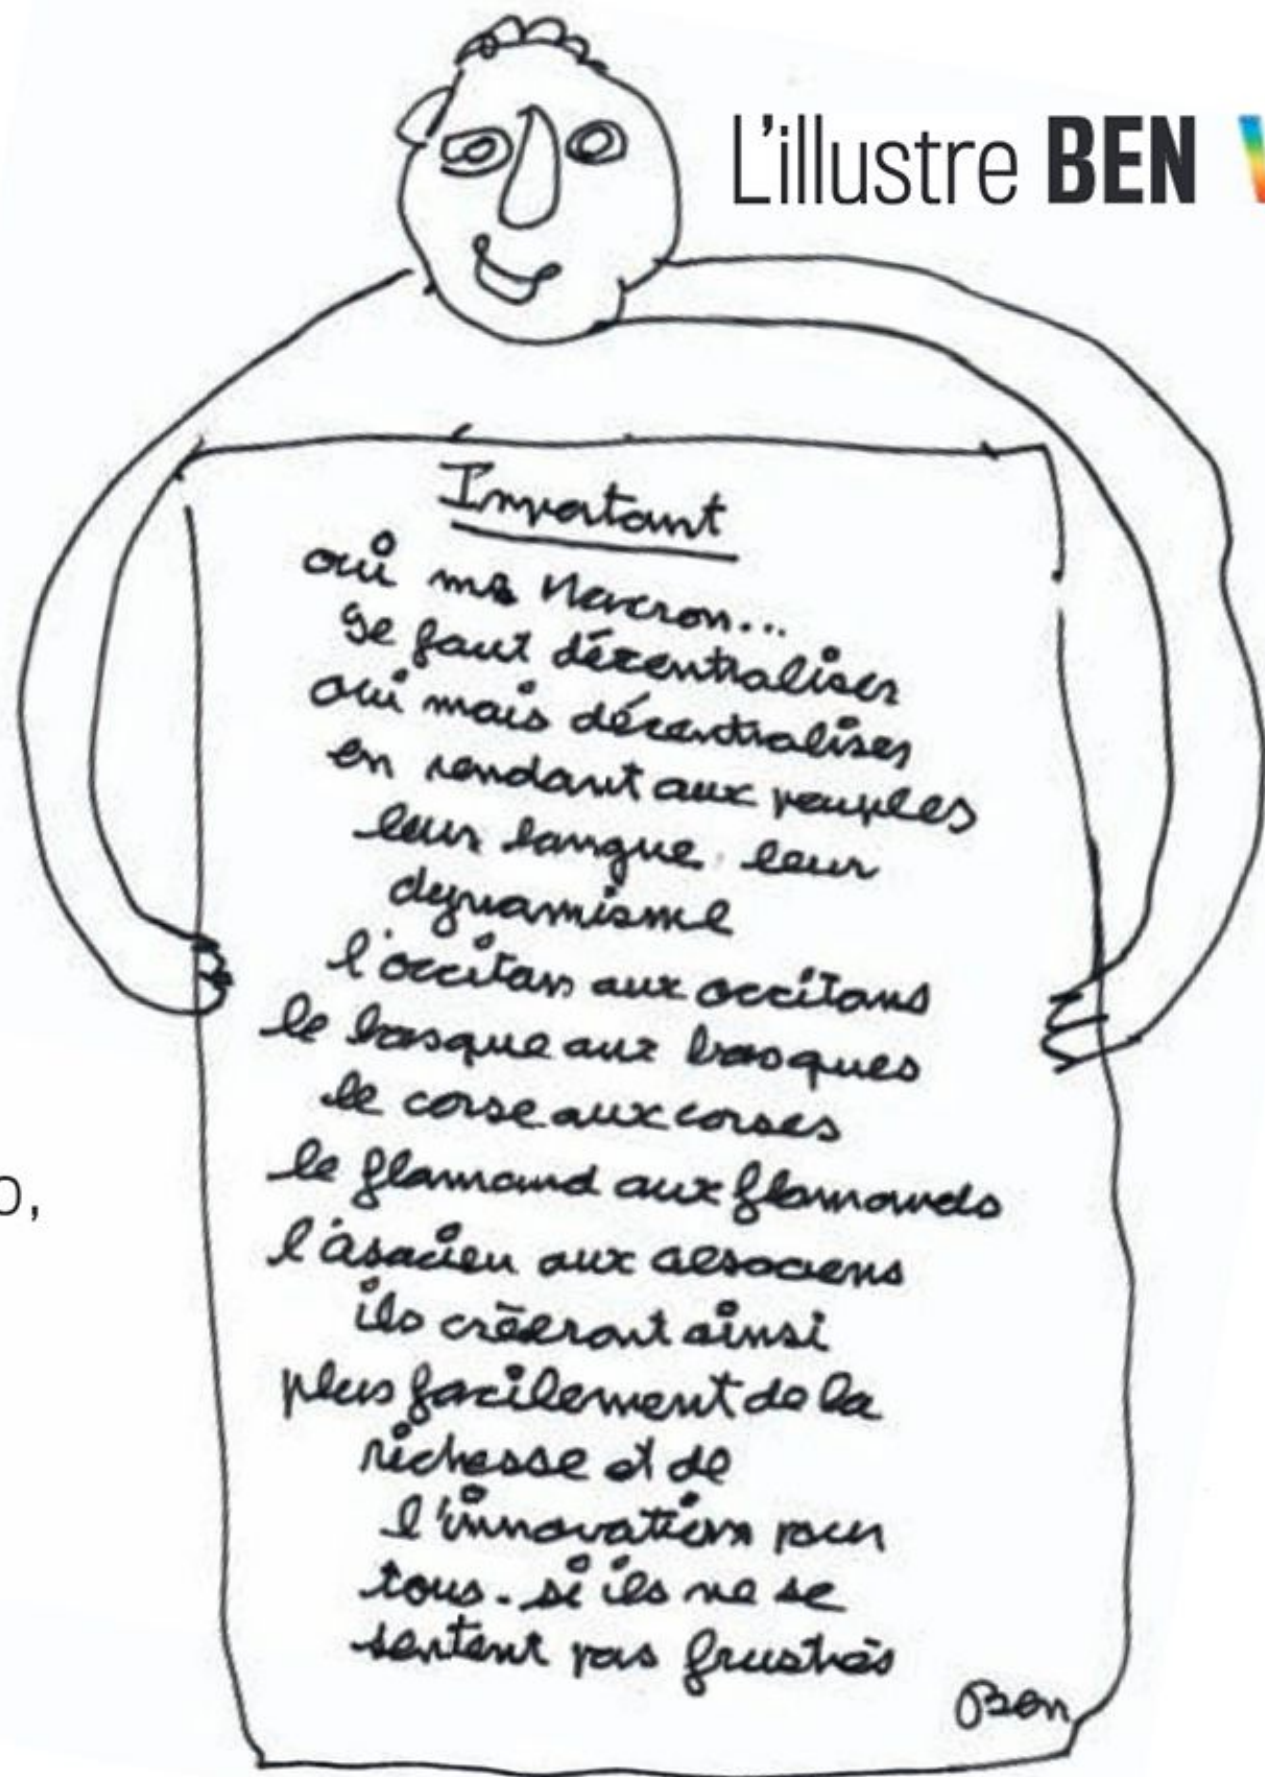 L'illustre BEN
Important
oui mr Macron...
Il faut décentraliser
oui mais décentraliser
en rendant aux peuples
leur langue leur
dynamisme
l'occitan aux occitans
le basque aux basques
le corse aux corses
le flamand aux flamands
l'asacien aux alsaciens
ils créeront ainsi
plus facilement de la
richesse et de
l'innovation pour
tous. si ils ne se
sentent pas frustrés
Ben